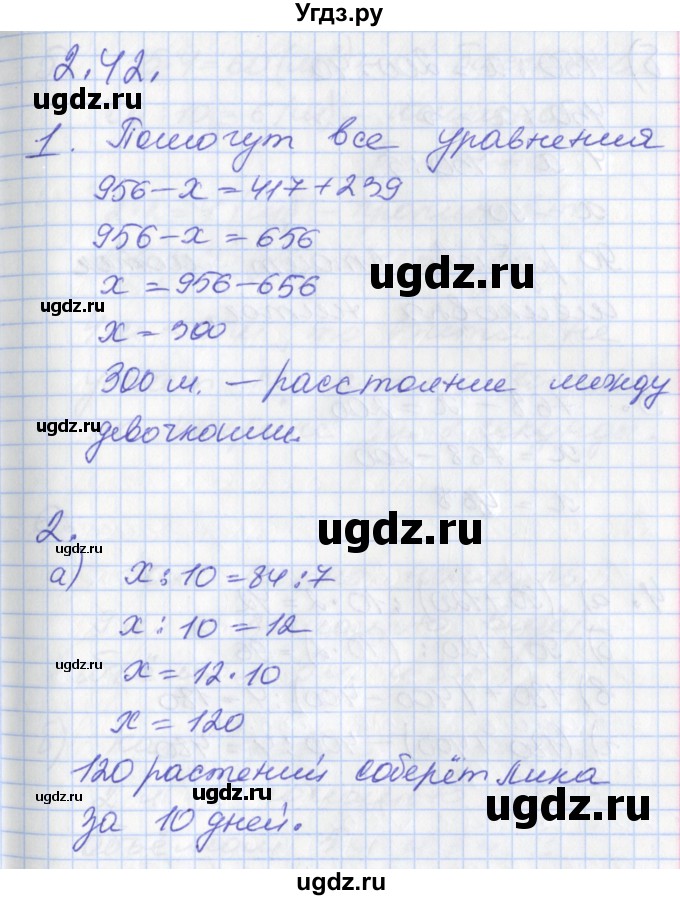 Угдз.ру
2.42.
ugdz.ru
1. Помогут все уравнения
956-x=417+239
956-x=656
ugdz.ru
x=956-656
ugdz.ru
x=300
300 м. — расстояние между
ugdz.ru
девочками.
2.
ugdz.ru
ugdz.ru
а) x:10=84:7
x:10=12
ugdz.ru
x=12·10
ugdz.ru
x=120
120 растений соберёт Лина
ugdz.ru
ugdz.ru
ugdz.ru
за 10 дней.
ugdz.ru
ugdz.ru